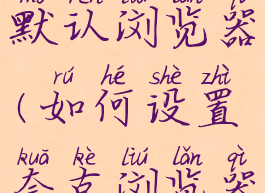 默认浏览器
rú hé shè zhì
(如何设置
kuā kè liú lǎn qì
夸克浏览器